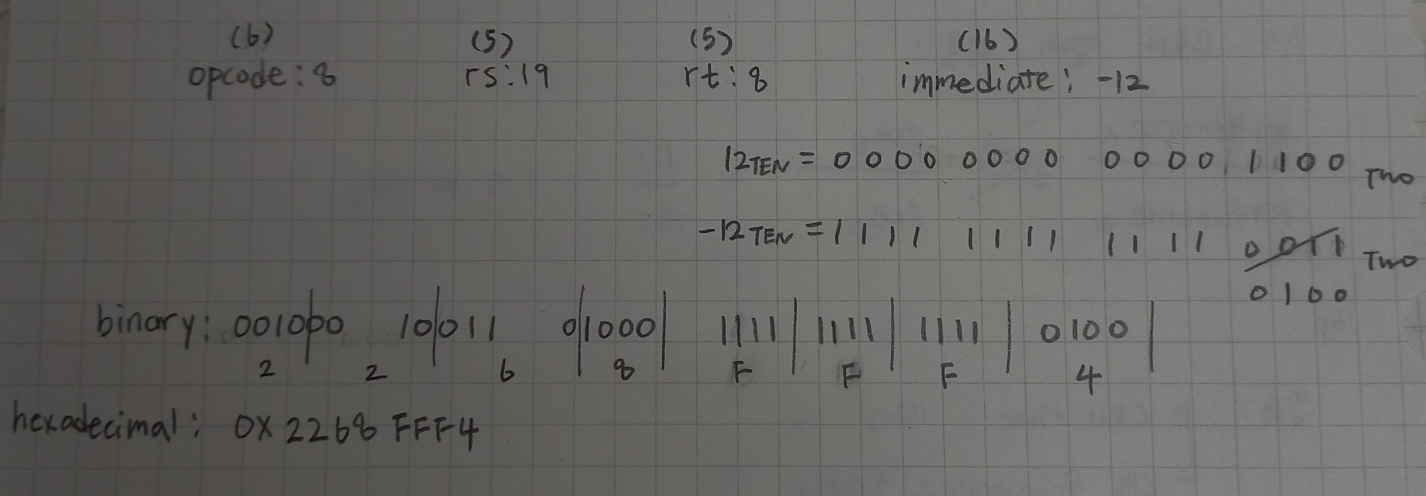 (6) (5) (5) (16)
opcode: 8 rs: 19 rt: 8 immediate: -12
12TEN = 0000 0000 0000 1100 Two
-12TEN = 1111 1111 1111 0011 Two
0100
binary: 0010|00 10|011 0|1000| 1111| 1111| 1111| 0100|
2 2 6 8 F F F 4
hexadecimal: 0X2268 FFF4